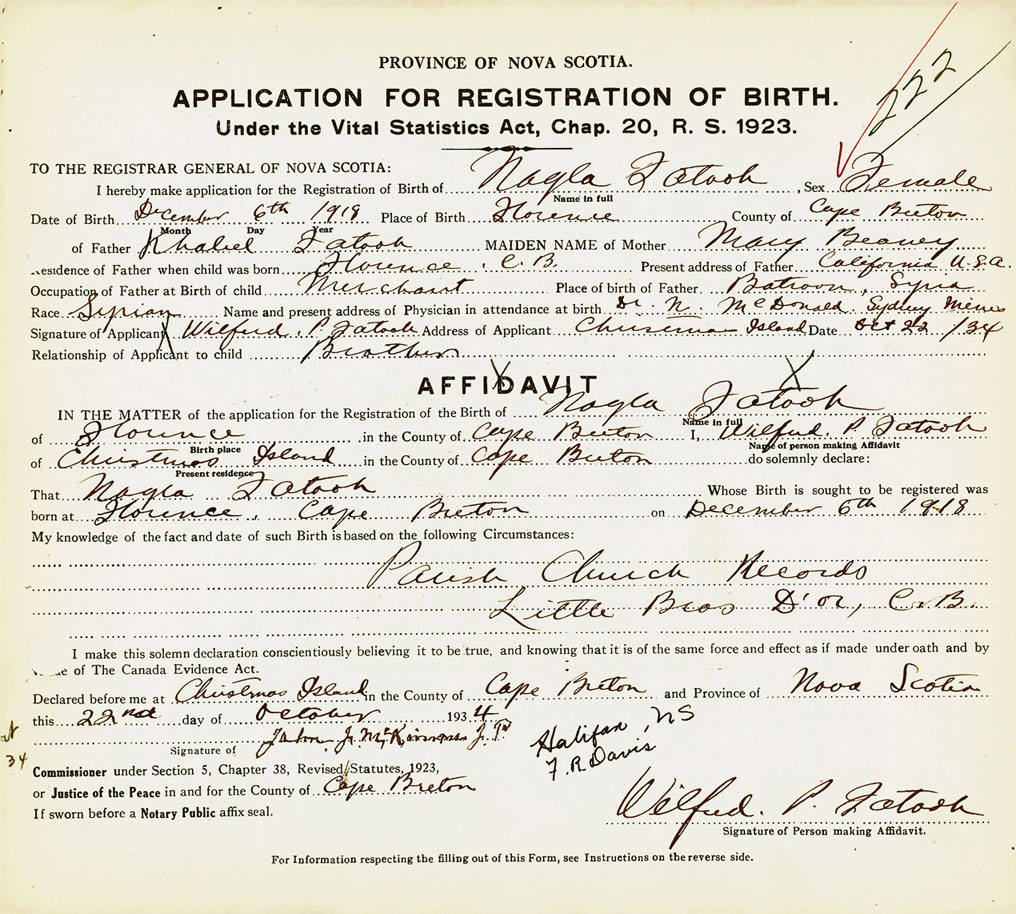 222
PROVINCE OF NOVA SCOTIA.
APPLICATION FOR REGISTRATION OF BIRTH.
Under the Vital Statistics Act, Chap. 20, R. S. 1923.
TO THE REGISTRAR GENERAL OF NOVA SCOTIA:
I hereby make application for the Registration of Birth of Nagla Fatooh, Sex Female
Name in full
Date of Birth December 6th 1918 Place of Birth Florence County of Cape Breton
Month Day Year
of Father Khaleel Fatooh MAIDEN NAME of Mother Mary
Residence of Father when child was born Florence, C.B. Present address of Father California U.S.A.
Occupation of Father at Birth of child Merchant Place of birth of Father Batroon, Syria
Race Syrian Name and present address of Physician in attendance at birth Dr. N. McDonald Sydney Mines
Signature of Applicant Wilfred P. Fatooh Address of Applicant Christmas Island Date Oct 22 /34
Relationship of Applicant to child Brother
AFFIDAVIT
IN THE MATTER of the application for the Registration of the Birth of Nagla Fatooh
Name in full
of Florence in the County of Cape Breton I, Wilfred. P. Fatooh
Birth place Name of person making Affidavit
of Christmas Island in the County of Cape Breton do solemnly declare:
Present residence
That Nagla Fatooh Whose Birth is sought to be registered was
born at Florence, Cape Breton on December 6th 1918
My knowledge of the fact and date of such Birth is based on the following Circumstances:
Parish Church Records
Little Bras D'or, C.B.
I make this solemn declaration conscientiously believing it to be true, and knowing that it is of the same force and effect as if made under oath and by
of The Canada Evidence Act.
Declared before me at Christmas Island in the County of Cape Breton and Province of Nova Scotia
this 22nd day of October 1934
John J. McKinnon J.P.
Signature of
Halifax, NS
F. R. Davis
34
Commissioner under Section 5, Chapter 38, Revised Statutes, 1923,
or Justice of the Peace in and for the County of Cape Breton
If sworn before a Notary Public affix seal.
Wilfred. P. Fatooh
Signature of Person making Affidavit.
For Information respecting the filling out of this Form, see Instructions on the reverse side.